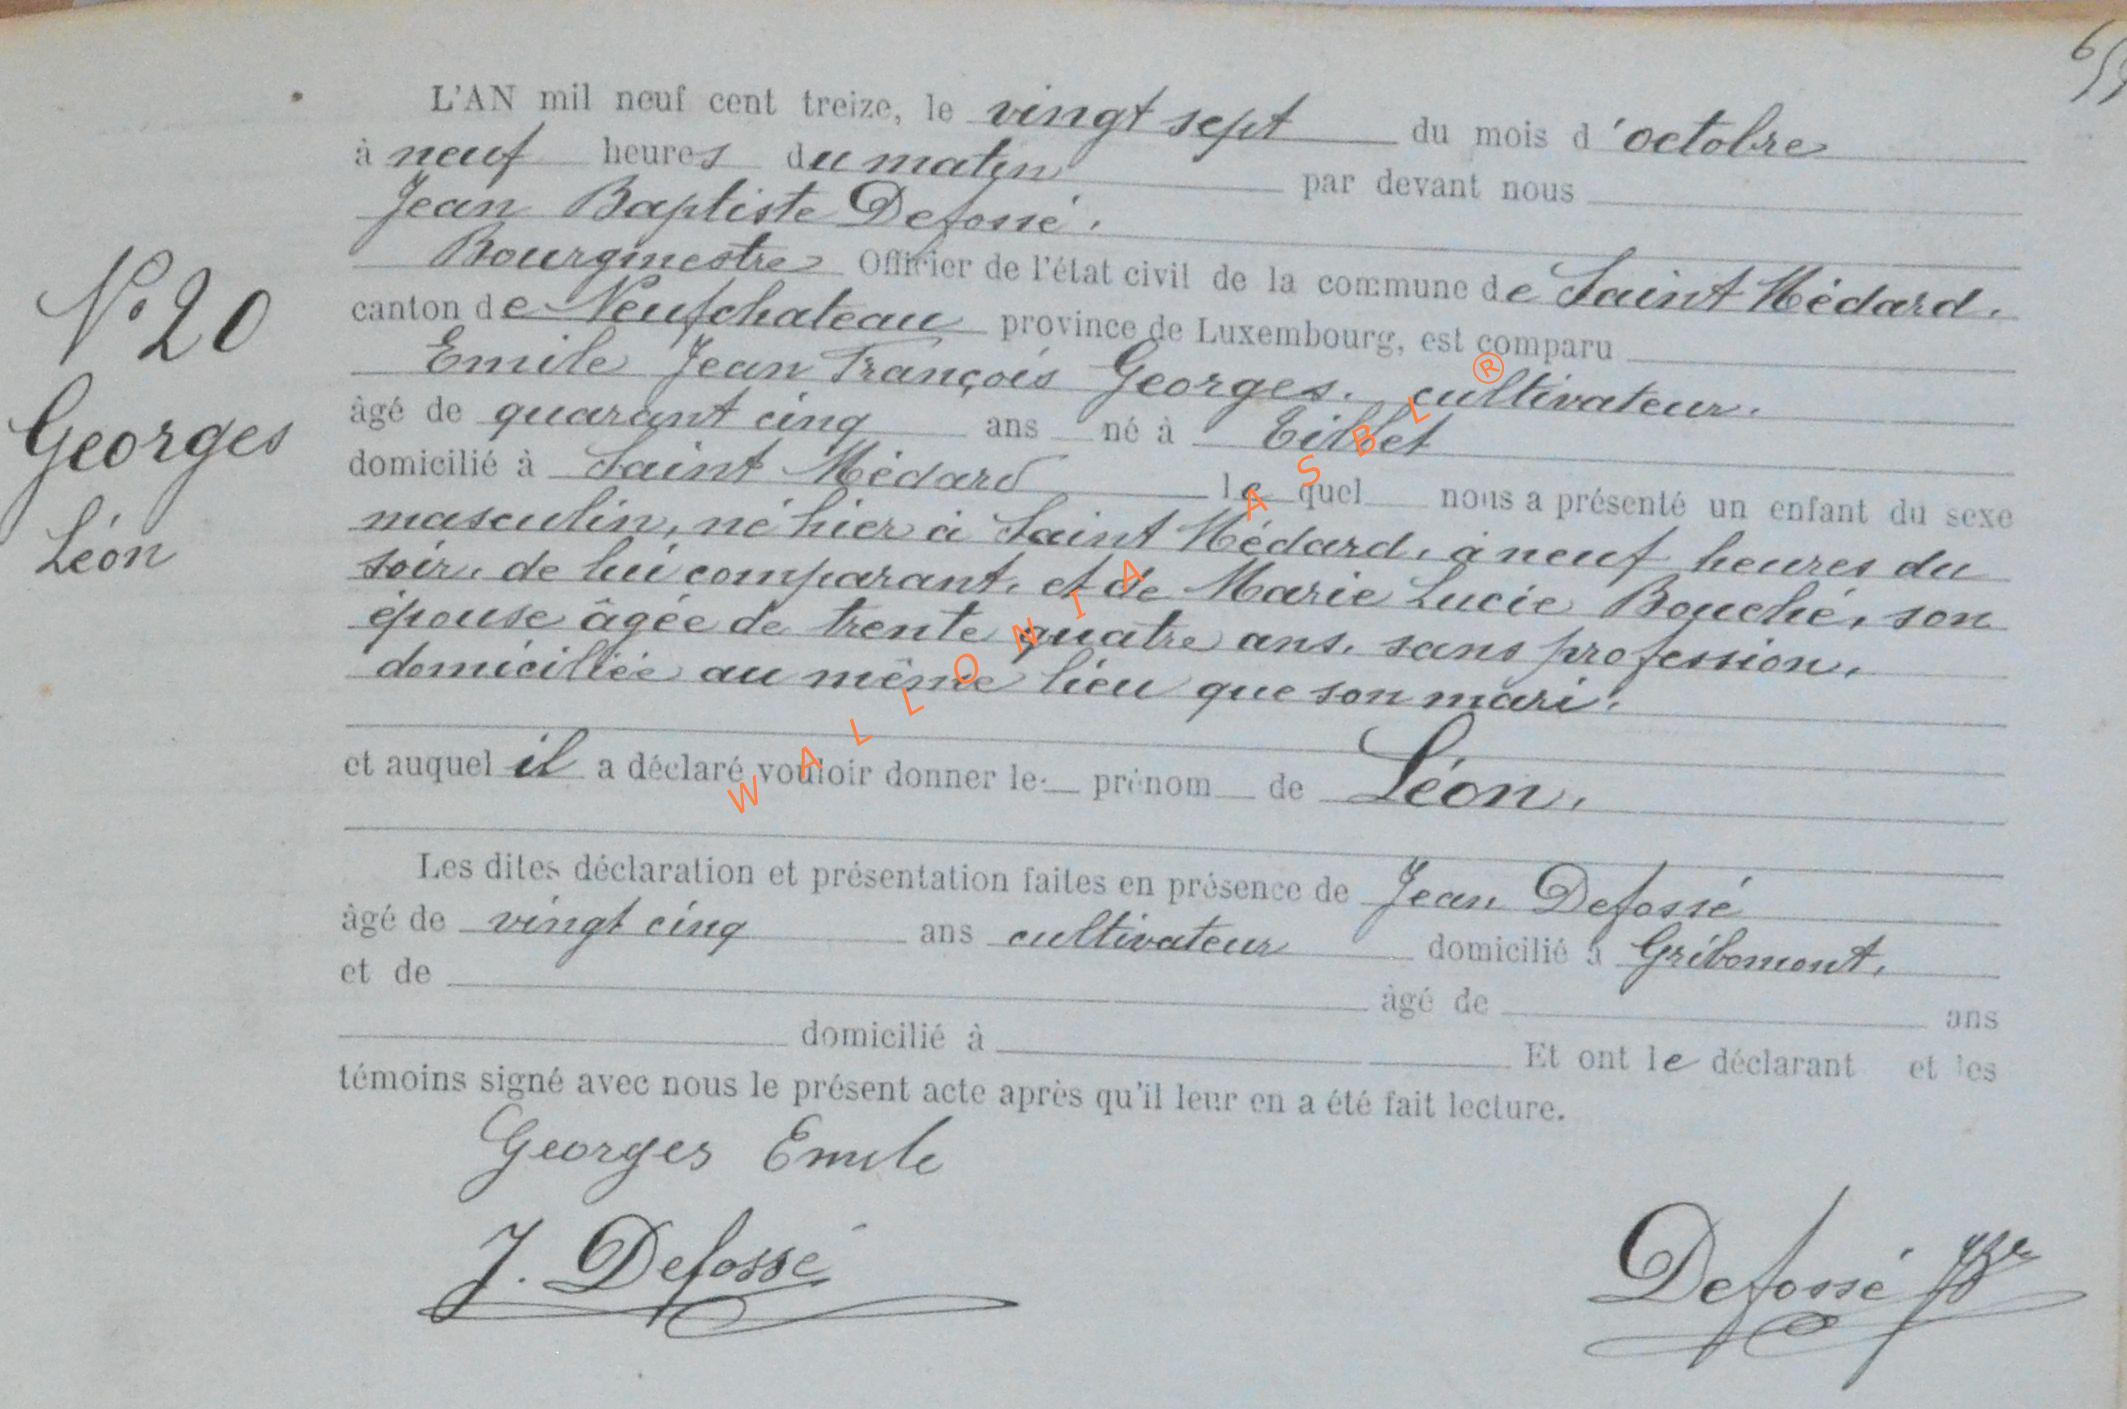 L'AN mil neuf cent treize, le vingt sept du mois d'octobre
à neuf heures du matin par devant nous
Jean Baptiste Defossé.
Bourgmestre Officier de l'état civil de la commune de Saint Médard.
canton de Neufchateau province de Luxembourg, est comparu
Emile Jean François Georges. cultivateur.
âgé de quarant cinq ans né à Tillet
domicilié à Saint Médard le quel nous a présenté un enfant du sexe
masculin, né hier à Saint Médard, à neuf heures du
soir, de lui comparant, et de Marie Lucie Bouché, son
épouse âgée de trente quatre ans, sans profession,
domiciliée au même lieu que son mari.
et auquel il a déclaré vouloir donner le prénom de Léon.
Les dites déclaration et présentation faites en présence de Jean Defossé
âgé de vingt cinq ans cultivateur domicilié à Gribomont.
et de âgé de ans
domicilié à Et ont le déclarant et les
témoins signé avec nous le présent acte après qu'il leur en a été fait lecture.
Georges Emile
J. Defossé
Defossé
N° 20
Georges
Léon
WALLONIA ASBL ®